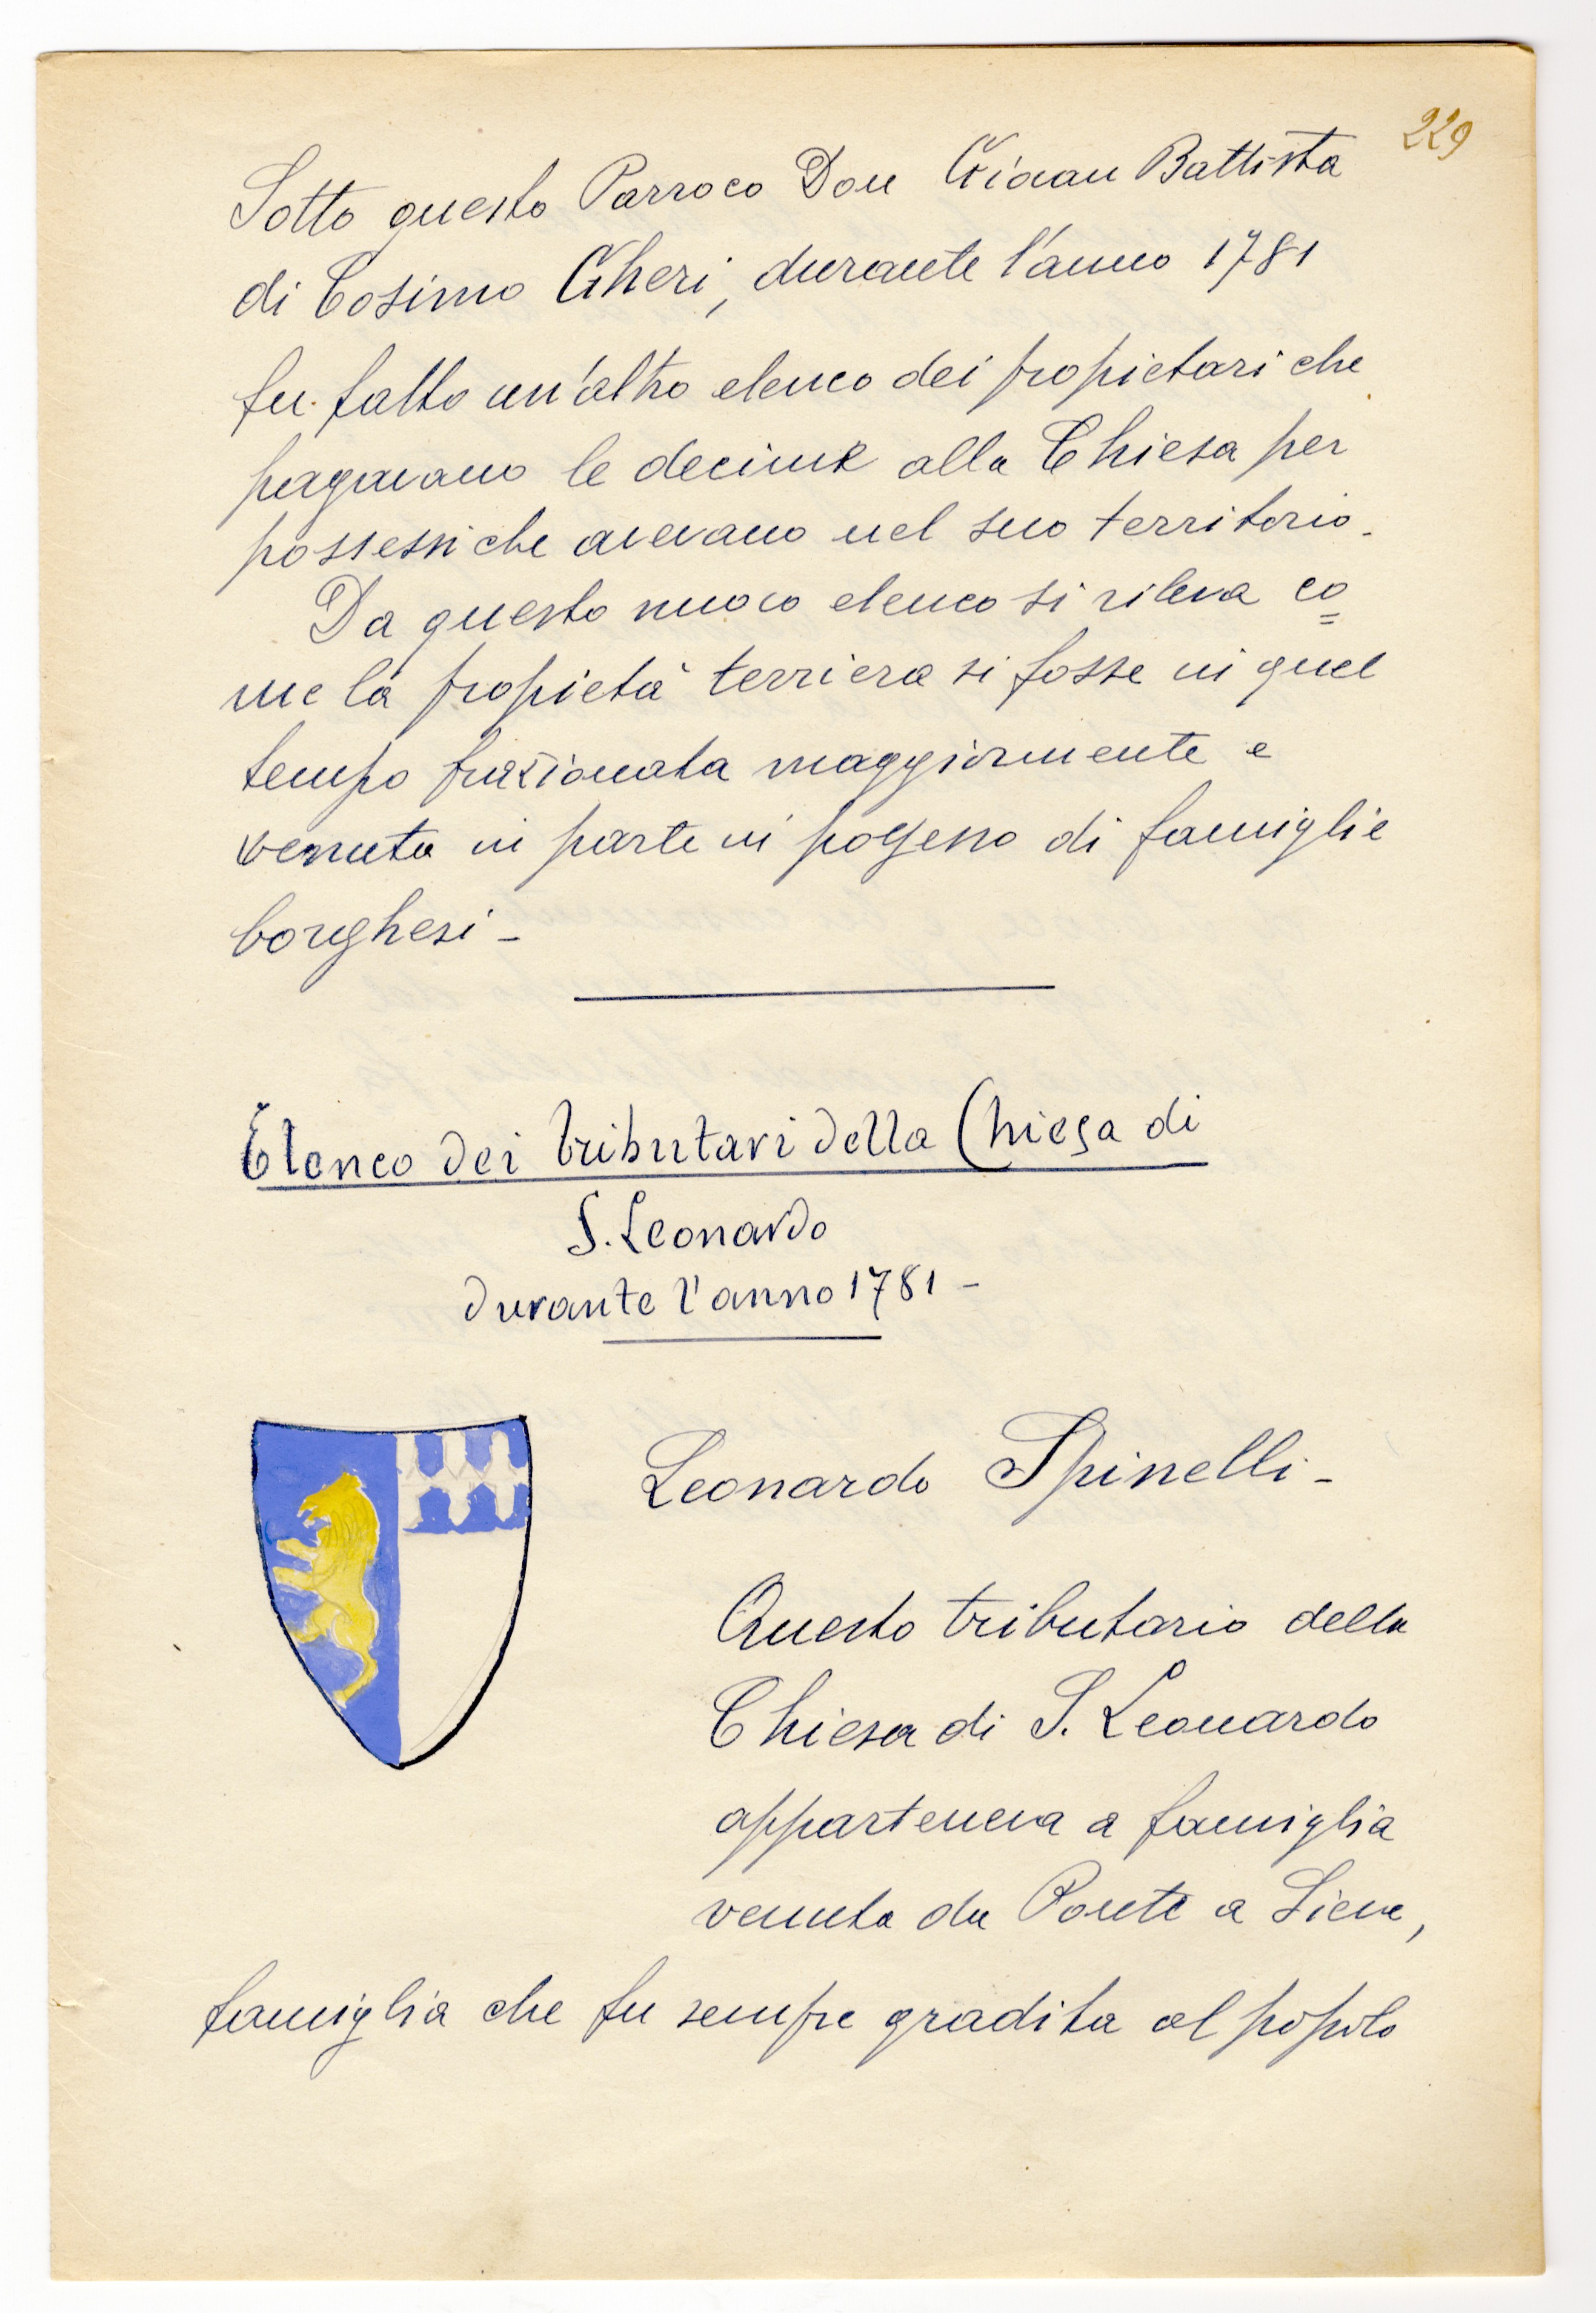 229
Sotto questo Parroco Don Giovan Battista
di Cosimo Gheri, durante l'anno 1781
fu fatto un'altro elenco dei propietari che
pagavano le decime alla Chiesa per
possessi che avevano nel suo territorio.
Da questo nuovo elenco si rileva co=
me la propietà terriera si fosse in quel
tempo frazionata maggiormente e
venuta in parte in possesso di famiglie
borghesi -
Elenco dei tributari della Chiesa di
S. Leonardo
durante l'anno 1781 -
Leonardo Spinelli -
Questo tributario della
Chiesa di S. Leonardo
apparteneva a famiglia
venuta da Ponte a Sieve,
famiglia che fu sempre gradita al popolo